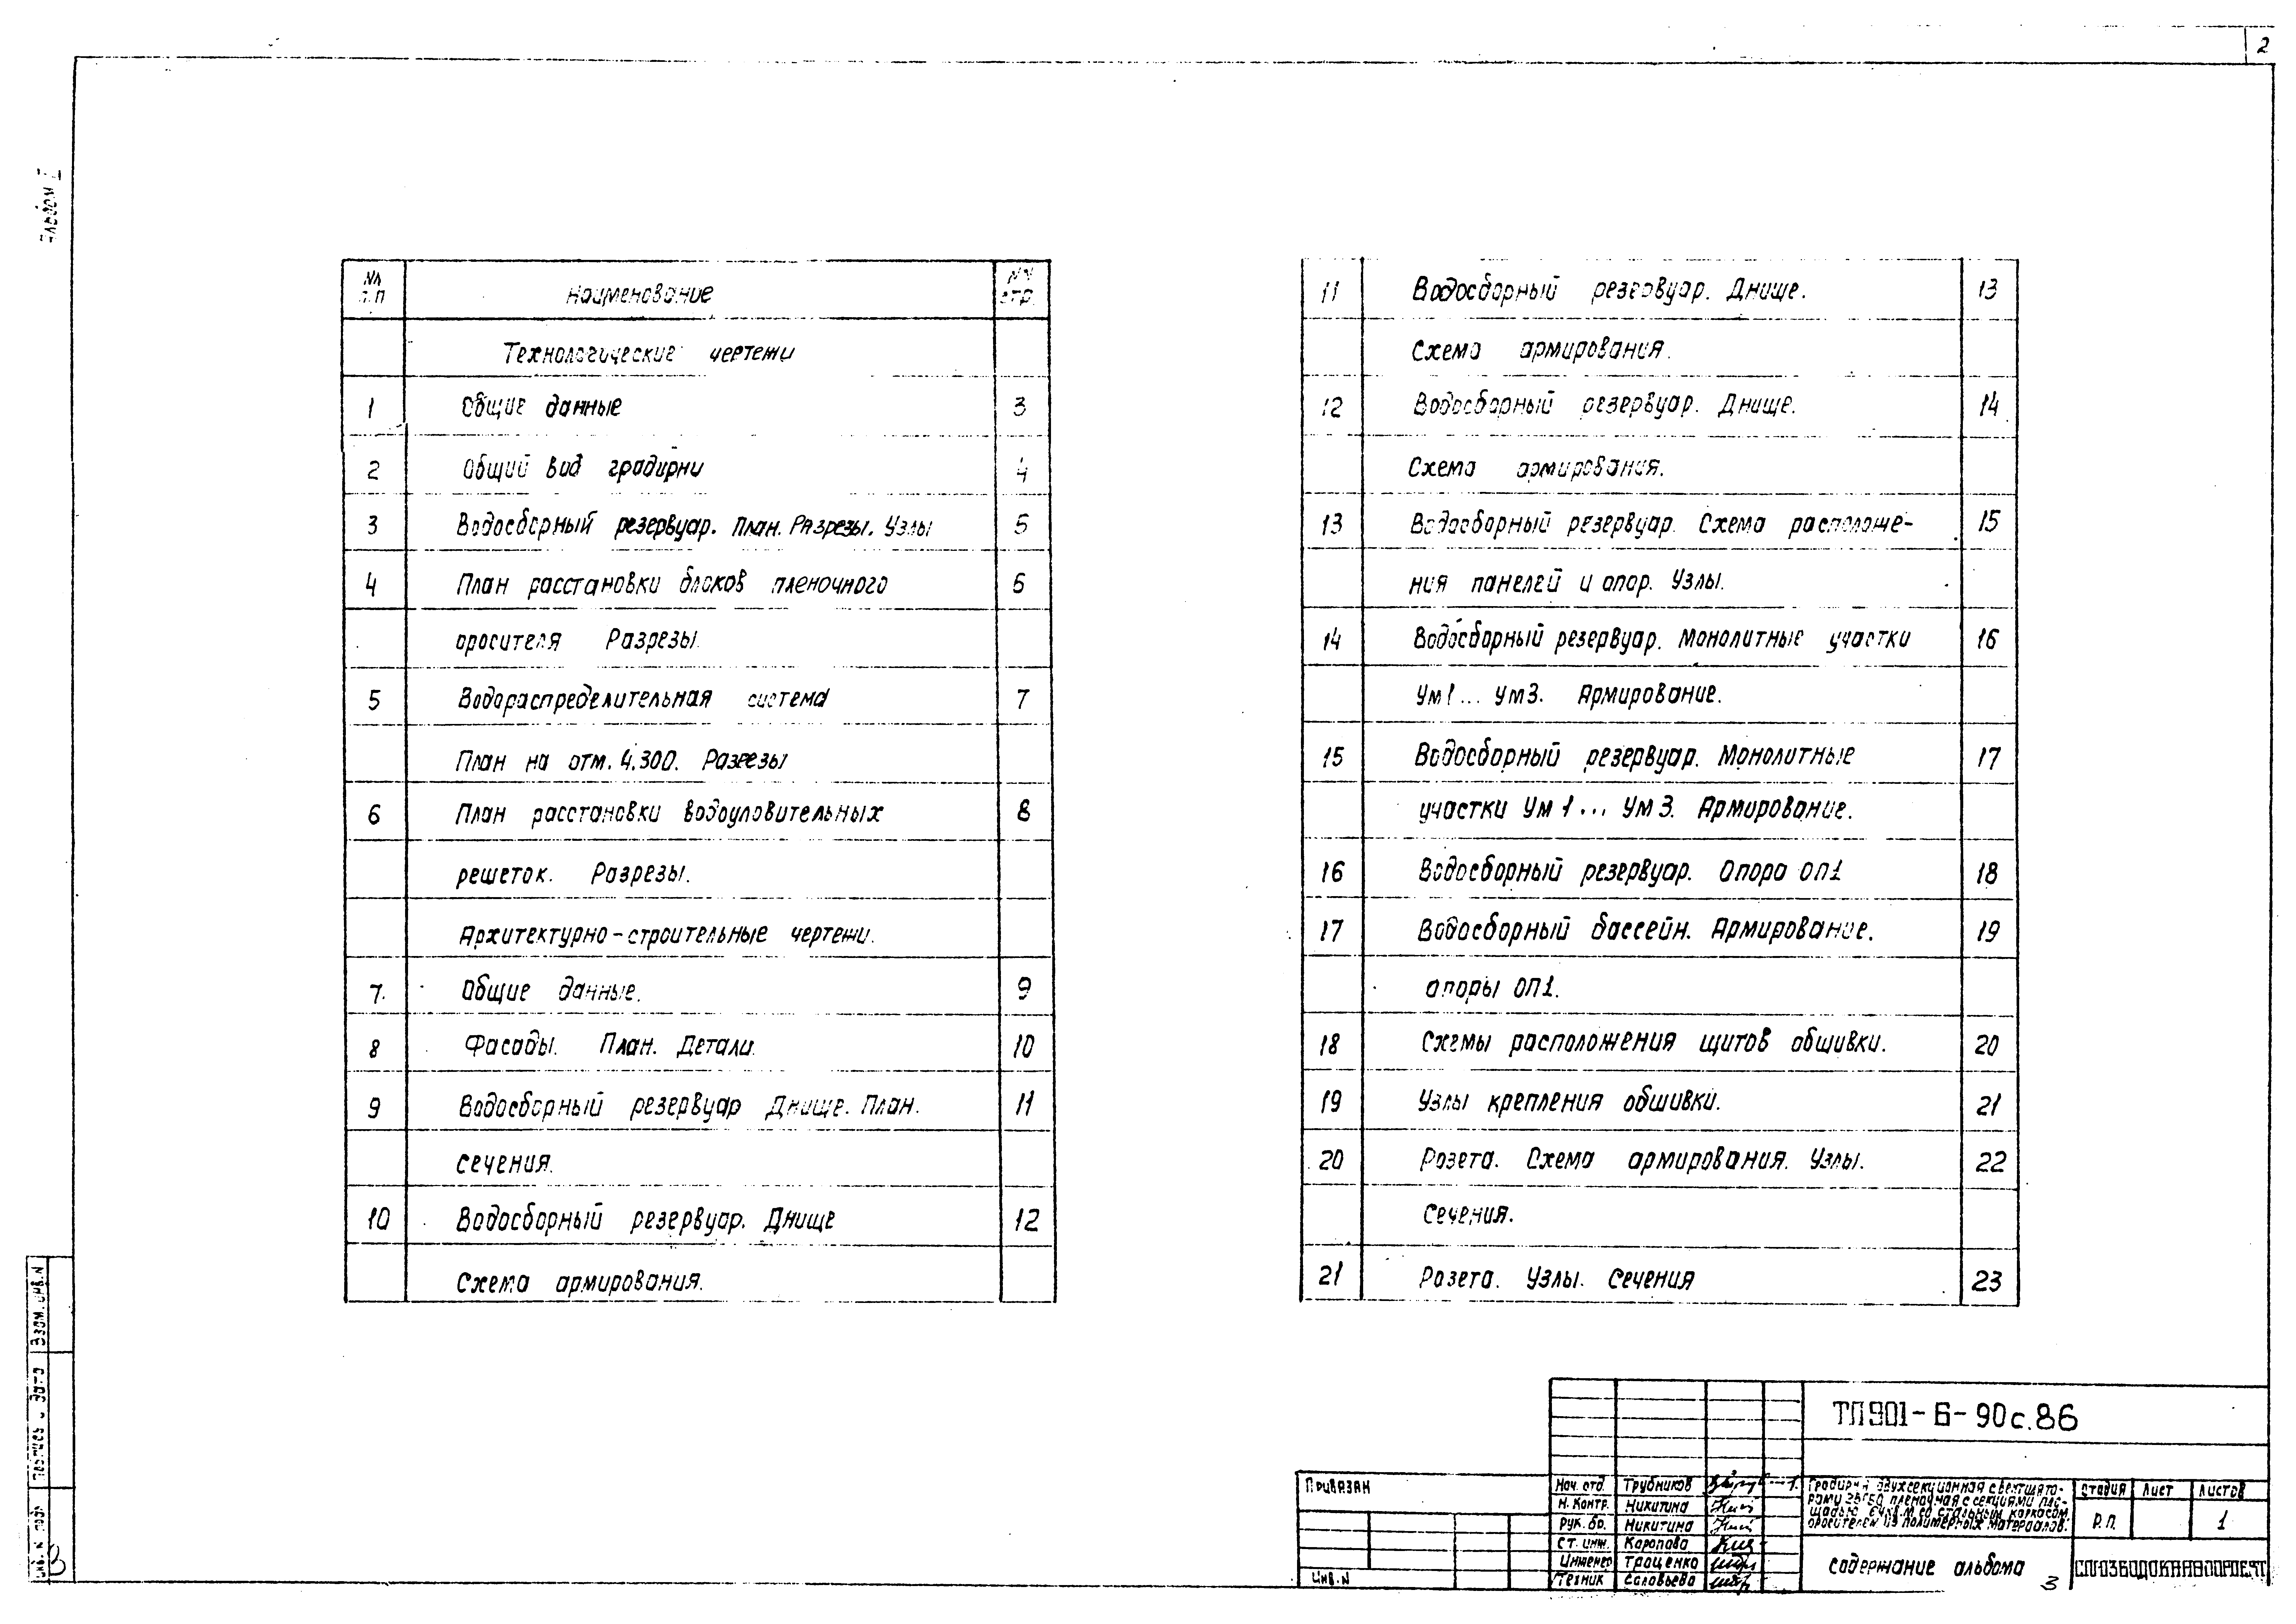 2
Альбом I
NN п.п Наименование NN стр.
Технологические чертежи
1 Общие данные 3
2 Общий вид градирни 4
3 Водосборный резервуар. План. Разрезы. Узлы 5
4 План расстановки блоков пленочного 6
оросителя Разрезы
5 Водораспределительная система 7
План на отм. 4.300. Разрезы
6 План расстановки водоуловительных 8
решеток. Разрезы.
Архитектурно-строительные чертежи.
7. Общие данные. 9
8 Фасады. План. Детали. 10
9 Водосборный резервуар Днище. План. 11
сечения.
10 Водосборный резервуар. Днище 12
Схема армирования.
11 Водосборный резервуар. Днище. 13
Схема армирования.
12 Водосборный резервуар. Днище. 14
Схема армирования.
13 Водосборный резервуар. Схема расположе- 15
ния панелей и опор. Узлы.
14 Водосборный резервуар. Монолитные участки 16
Ум1... Ум3. Армирование.
15 Водосборный резервуар. Монолитные 17
участки Ум1... Ум3. Армирование.
16 Водосборный резервуар. Опора ОП1 18
17 Водосборный бассейн. Армирование. 19
опоры ОП1.
18 Схемы расположения щитов обшивки. 20
19 Узлы крепления обшивки. 21
20 Розета. Схема армирования. Узлы. 22
Сечения.
21 Розета. Узлы. Сечения 23
ТП 901-6-90с.86
Привязан
Инв.N
Нач. отд. Трубников
Н. Контр. Никитина
Рук. бр. Никитина
Ст. инж. Карапова
Инженер Троценко
Техник Соловьева
Градирня двухсекционная с вентилято-
рами 2ВГ50 пленочная с секциями пло-
щадью 64 кв.м со стальным каркасом
оросителем из полимерных материалов.
Стадия Лист Листов
Р.П. 1
Содержание альбома
СОЮЗВОДОКАНАЛПРОЕКТ
3
Взам. инв. N
Подпись и дата
Инв. N подл.
3